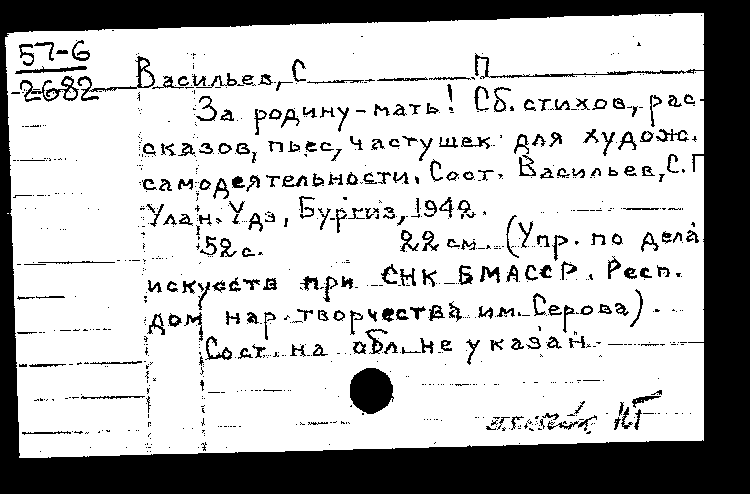 57-6
2682
Васильев, С П
За родину-мать! Сб. стихов, рас-
сказов, пьес, частушек для худож.
самодеятельности. Сост. Васильев, С.П
Улан-Удэ, Бургиз, 1942.
52 с. 22 см. (Упр. по дела
искусств при СНК БМАССР. Респ.
дом нар. творчества им. Серова).
Сост. на обл. не указан